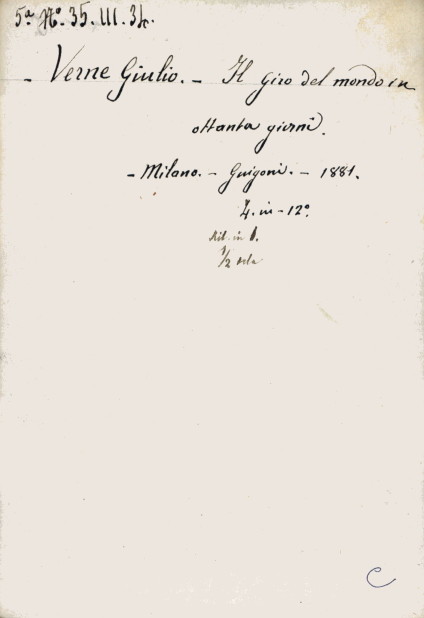 5ª Nº 35. III. 34.
- Verne Giulio. - Il giro del mondo in
ottanta giorni.
- Milano. - Guigoni. - 1881.
in - 12º.
in
1/2 tela
C